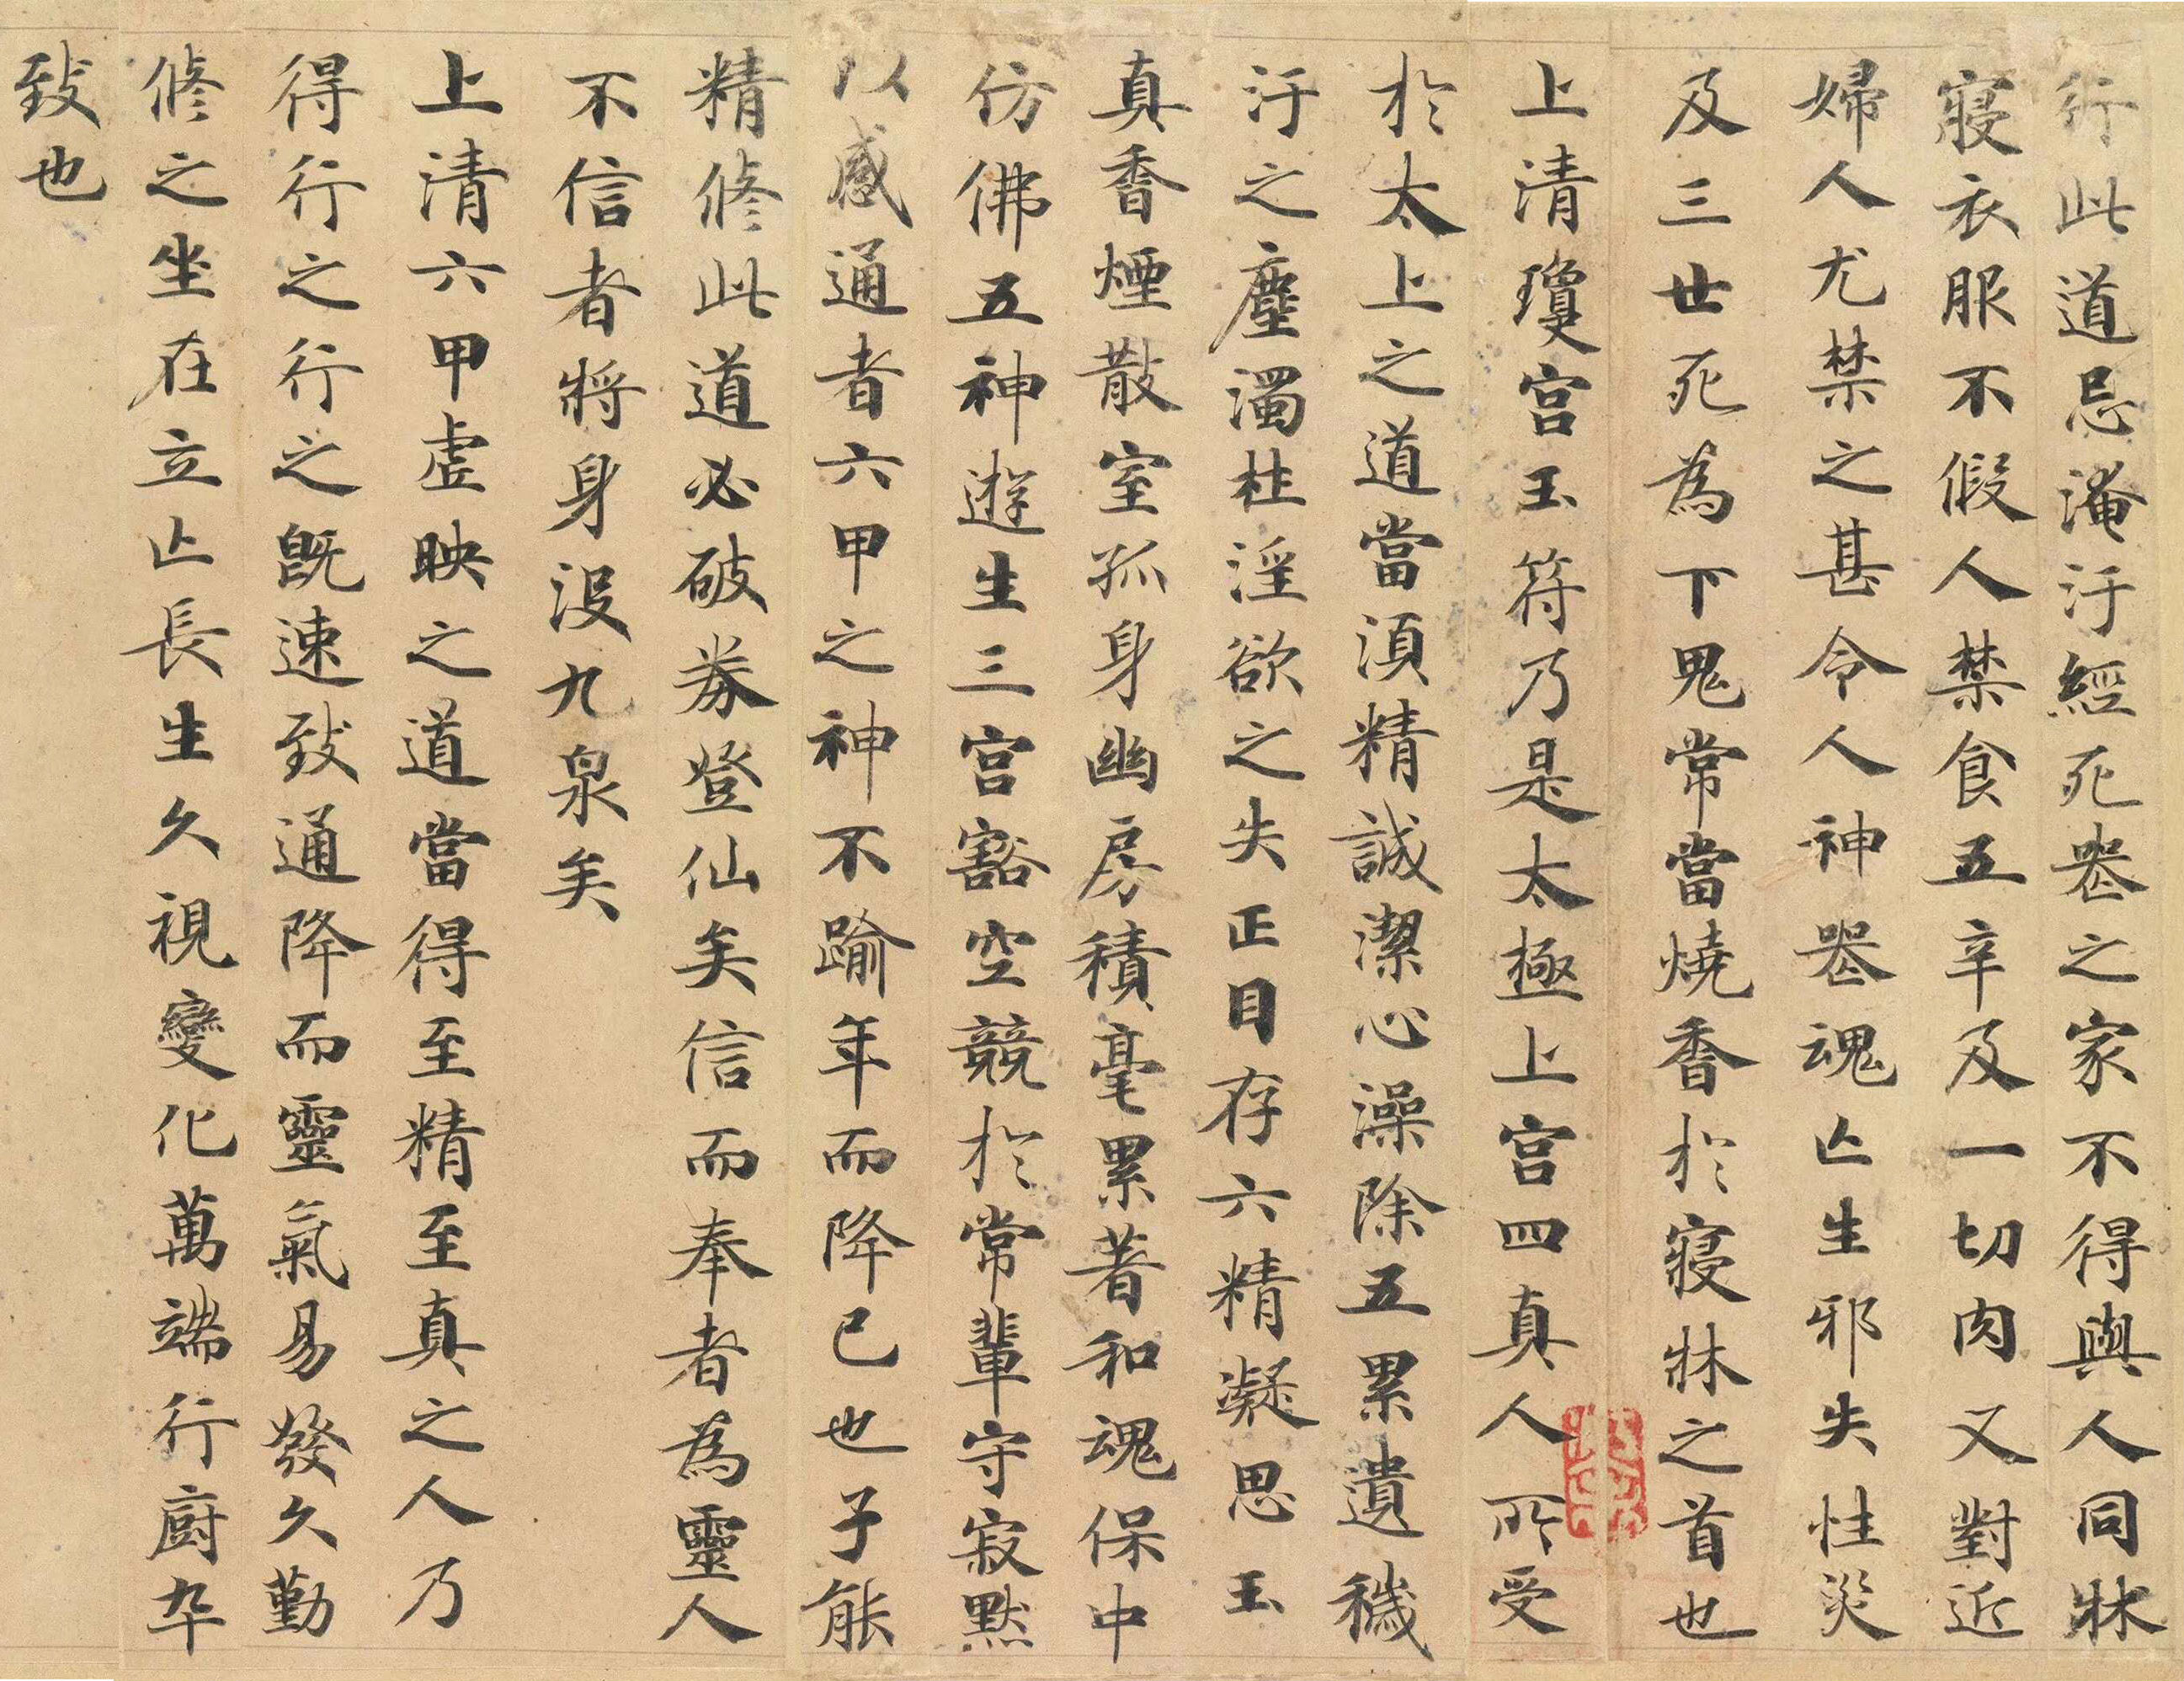 行此道忌淹汙經死喪之家不得與人同牀
寢衣服不假人禁食五辛及一切肉又對近
婦人尤禁之甚令人神喪魂亡生邪失性災
及三世死為下鬼常當燒香於寢牀之首也
上清瓊宮玉符乃是太極上宮四真人所受
於太上之道當須精誠潔心澡除五累遺穢
汙之塵濁杜淫欲之失正目存六精凝思玉
真香煙散室孤身幽房積毫累著和魂保中
仿佛五神遊生三宮豁空競於常輩守寂默
以感通者六甲之神不踰年而降已也子能
精修此道必破券登仙矣信而奉者為靈人
不信者將身沒九泉矣
上清六甲虛映之道當得至精至真之人乃
得行之行之既速致通降而靈氣易發久勤
修之坐在立亡長生久視變化萬端行廚卒
致也